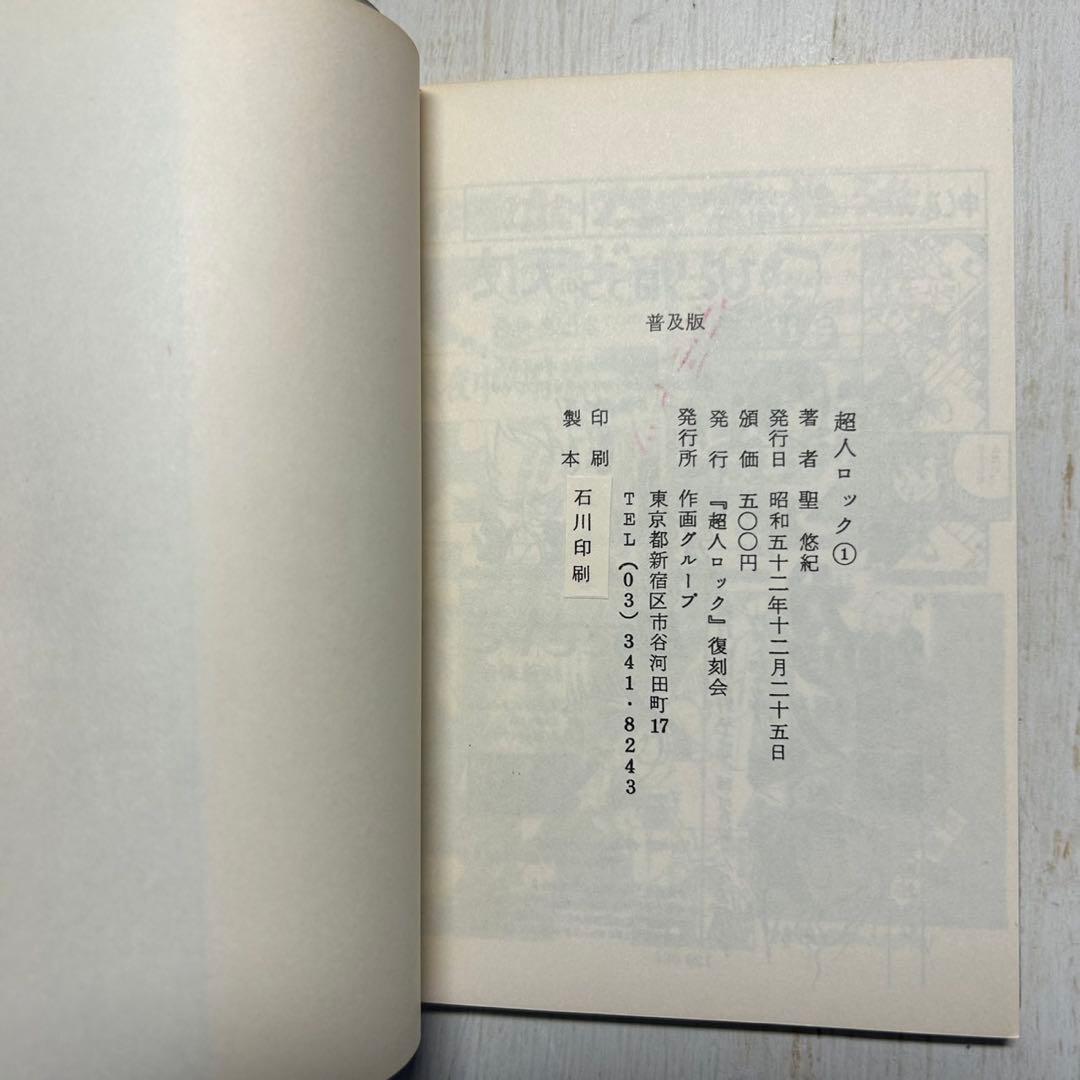 普及版
超人ロック①
著者 聖 悠紀
発行日 昭和五十二年十二月二十五日
頒価 五〇〇円
発行 『超人ロック』復刻会
発行所 作画グループ
東京都新宿区市谷河田町17
TEL(03)341・8243
印刷
製本
石川印刷